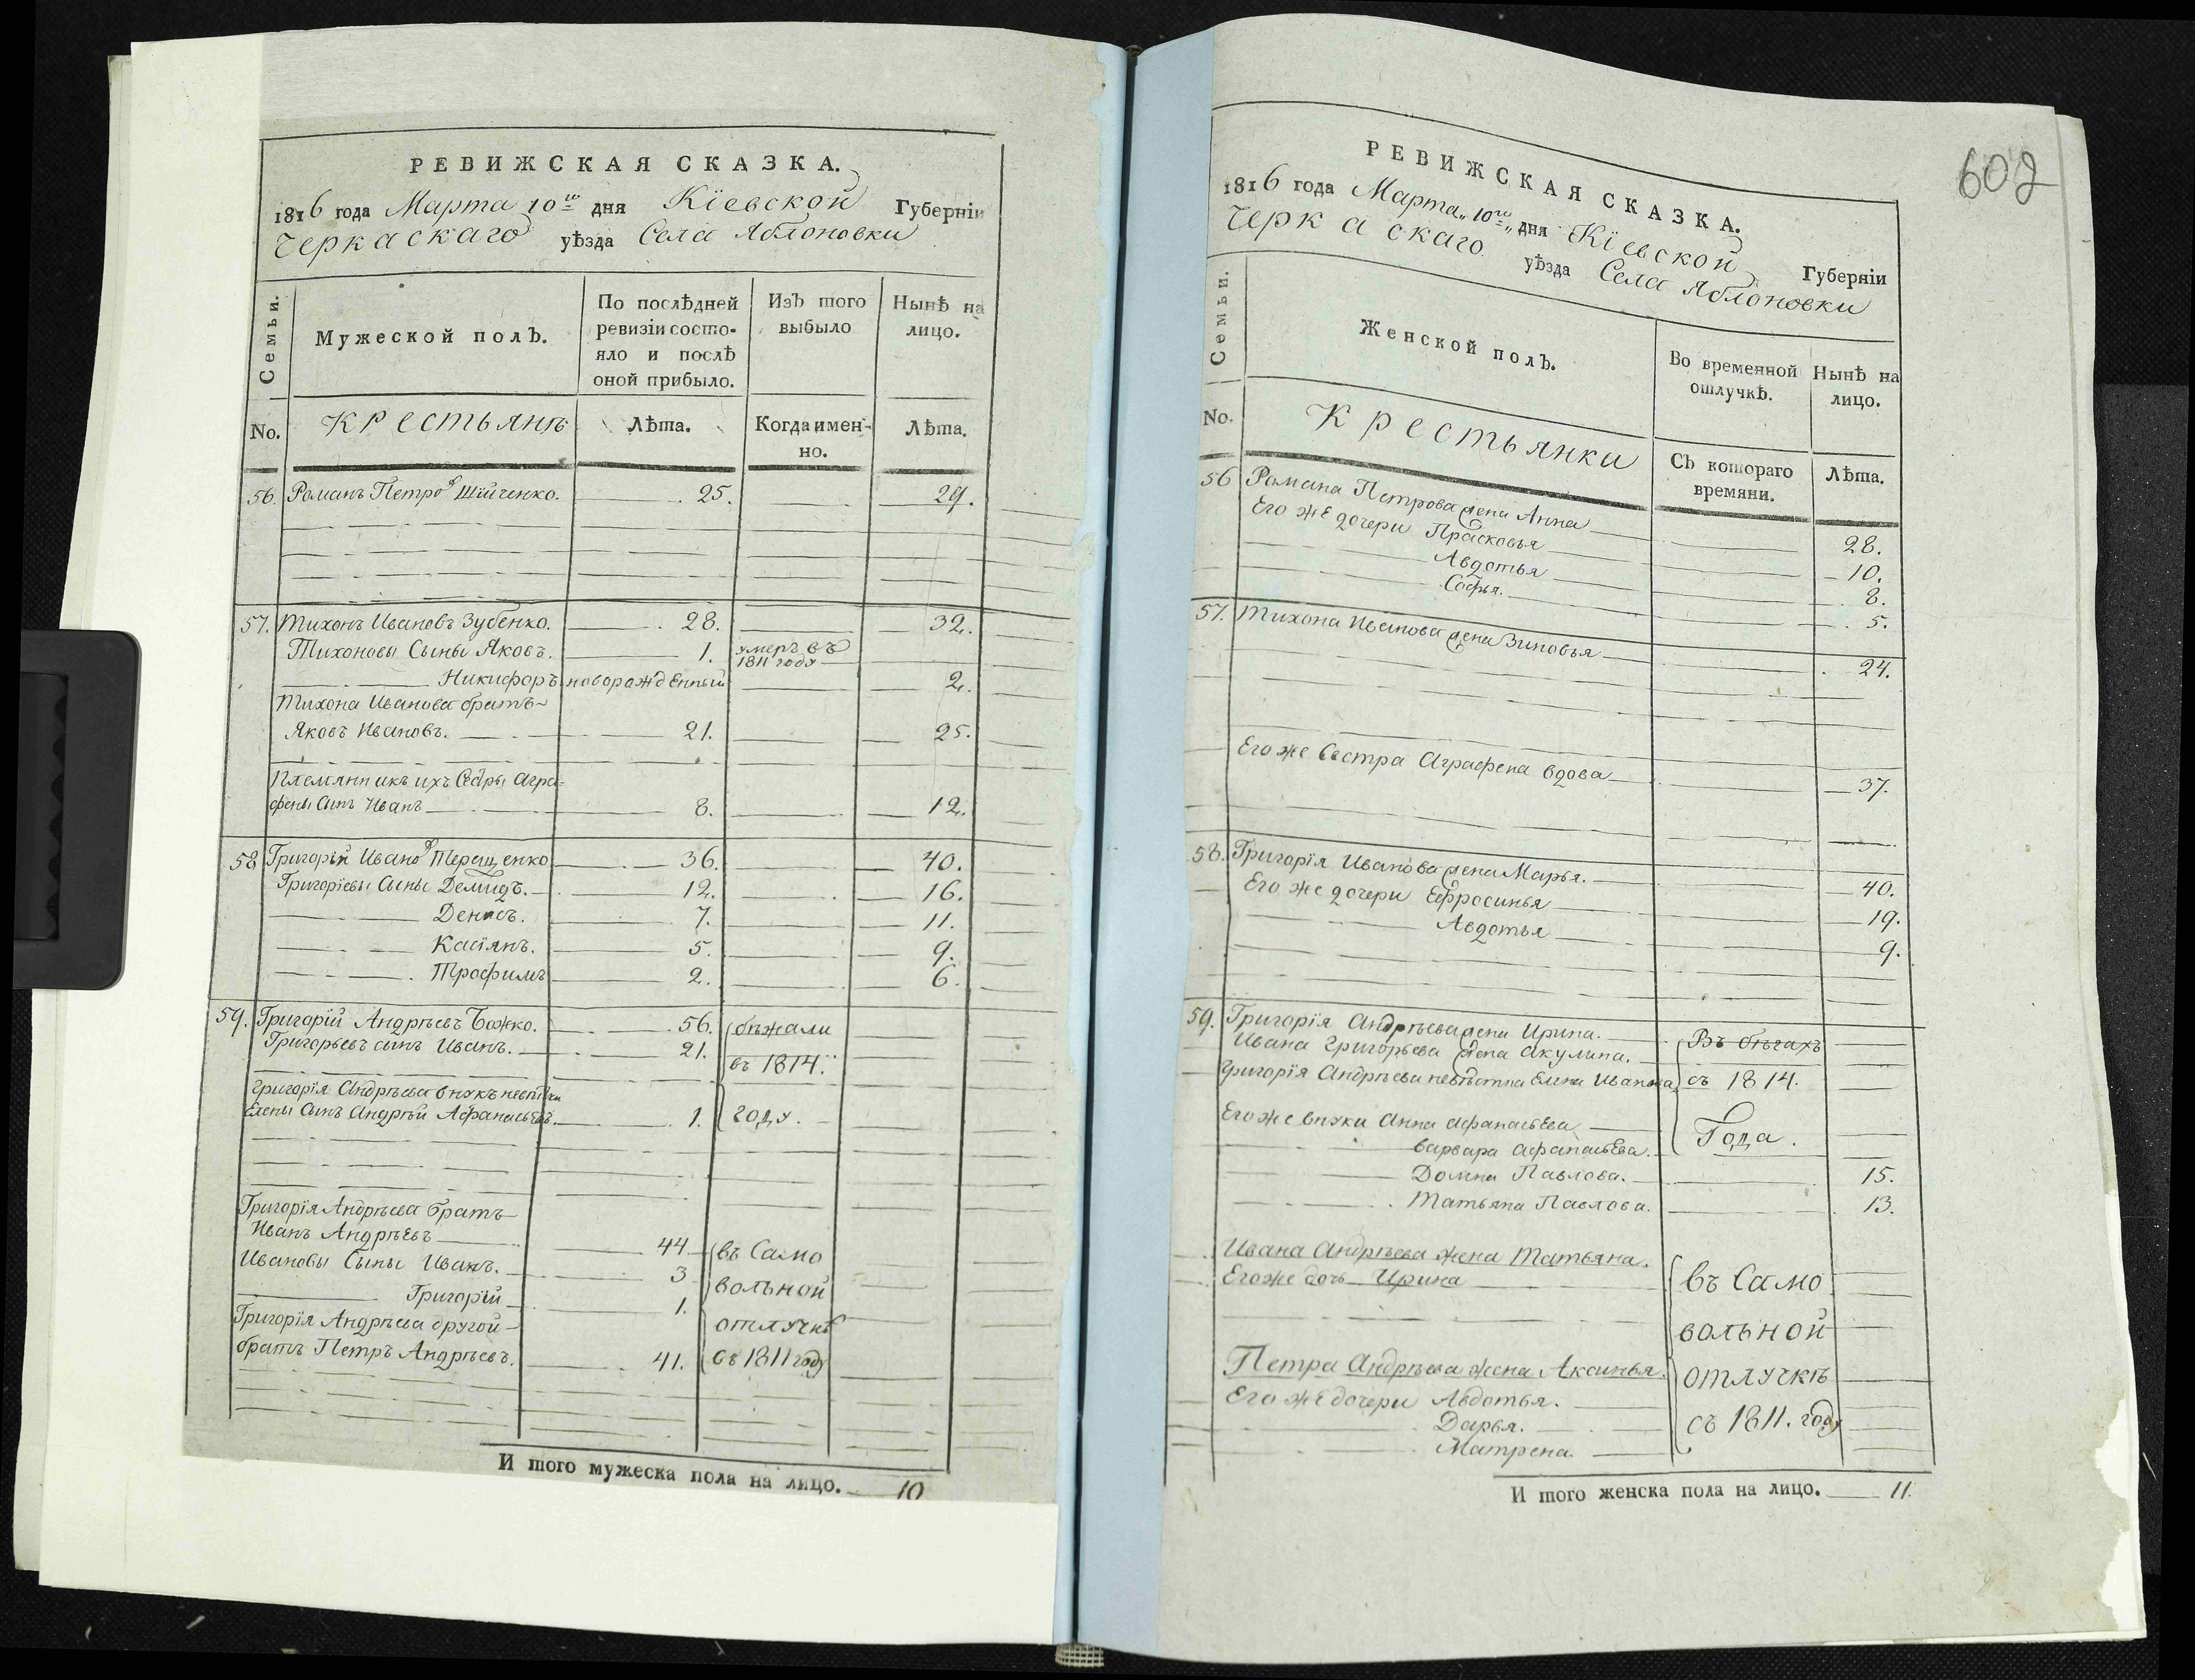 РЕВИЖСКАЯ СКАЗКА.
1816 года Марта 10го дня Кіевской Губерніи
Черкаскаго уѣзда Села Яблоновки
Семьи.
Мужеской полъ.
По послѣдней ревизіи состо-
яло и послѣ
оной прибыло.
Изъ того
выбыло
Нынѣ на
лицо.
No.
Крестьянѣ
Лѣта.
Когда имен-
но.
Лѣта.
56. Романъ Петровъ Шійченко. 25. 29.
57. Тихонъ Ивановъ Зубенко. 28. 32.
Тихоновы Сыны Яковъ. 1. умеръ въ
1811 году
Никифоръ новорожденный 2.
Тихона Иванова братъ
Яковъ Ивановъ. 21. 25.
Племянникъ ихъ Сестры Агра-
фены Сынъ Иванъ 8. 12.
58 Григорій Ивановъ Терещенко 36. 40.
Григоріевы Сыны Демидъ. 12. 16.
Денисъ. 7. 11.
Касіянъ. 5. 9.
Трофимъ 2. 6.
59. Григорій Андрѣевъ Божко. 56. бѣжали
Григорьевъ сынъ Иванъ. 21. въ 1814.
Григорія Андрѣева внукъ невѣстки
Елены Сынъ Андрѣй Афанасьевъ. 1. году.
Григорія Андрѣева братъ
Иванъ Андрѣевъ 44 въ Само
Ивановы Сыны Иванъ. 3 вольной
Григорій 1.
Григорія Андрѣева другой отлучкѣ
братъ Петръ Андрѣевъ. 41. съ 1811 году
И того мужеска пола на лицо. 10
602
РЕВИЖСКАЯ СКАЗКА.
1816 года Марта 10го дня Кіевской Губерніи
Черкаскаго уѣзда Села Яблоновки
Семьи.
Женской полъ.
Во временной
отлучкѣ.
Нынѣ на
лицо.
No.
Крестьянки
Съ котораго
времяни.
Лѣта.
56 Романа Петрова жена Анна 28.
Его же дочери Прасковья 10.
Авдотья 8.
Софья. 5.
57. Тихона Иванова жена Зиновья 24.
Его же Сестра Аграфена вдова 37.
58. Григорія Иванова жена Марья. 40.
Его же дочери Ефросинья 19.
Авдотья 9.
59. Григорія Андрѣева жена Ирина. Въ бѣгахъ
Ивана Григорьева жена Акулина.
Григорія Андрѣева невѣстка Елена Иванова съ 1814.
Его же внуки Анна Афанасьева Года.
Варвара Афанасьева.
Домна Павлова. 15.
Татьяна Павлова. 13.
Ивана Андрѣева жена Татьяна.
Его же дочь Ирина въ Само
вольной
Петра Андрѣева жена Аксинья. отлучкѣ
Его же дочери Авдотья.
Дарья. съ 1811. году
Матрена.
И того женска пола на лицо. 11.